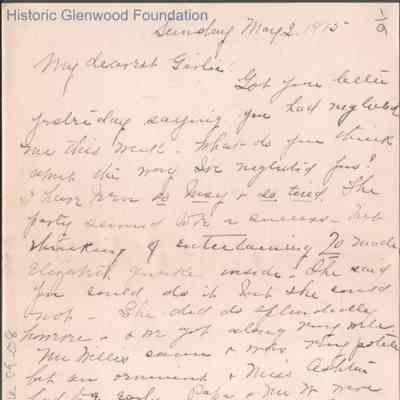 Historic Glenwood Foundation
Sunday May 2. 1915
1/a
My dearest Girlie:
Got your letter
yesterday saying you had neglected
me this week - What do you think
about the way I've neglected you?
I have been so busy & so tired. The
party seemed to be a success - but
thinking of entertaining 70 made
Elizabeth quake inside. She said
you could do it but she could
not - She did do splendidly
however - & we got along very well
Mr Willis came & was very polite
but an ornament & Miss
had to Papa & Mr W were